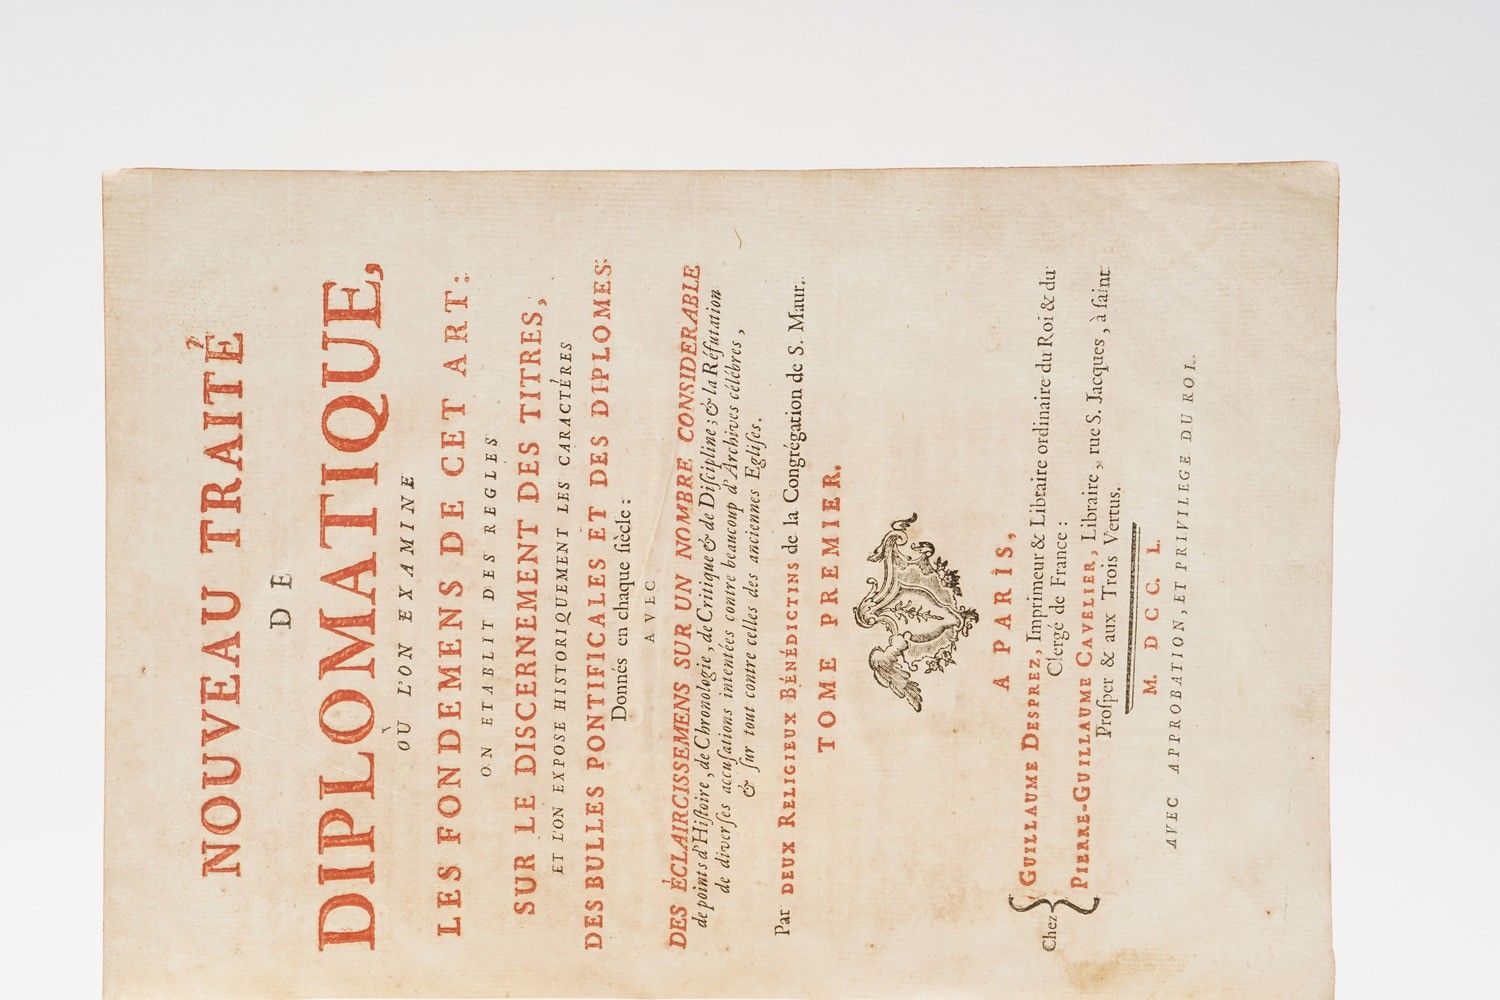 NOUVEAU TRAITÉ
DE
DIPLOMATIQUE,
OÙ L'ON EXAMINE
LES FONDEMENS DE CET ART:
ON ETABLIT DES REGLES
SUR LE DISCERNEMENT DES TITRES,
ET L'ON EXPOSE HISTORIQUEMENT LES CARACTÉRES
DES BULLES PONTIFICALES ET DES DIPLOMES
Donnés en chaque ſiècle:
AVEC
DES ÉCLAIRCISSEMENS SUR UN NOMBRE CONSIDERABLE
de points d'Hiſtoire, de Chronologie, de Critique & de Diſcipline; & la Réfutation
de diverſes accuſations intentées contre beaucoup d'Archives célébres,
& ſur tout contre celles des anciennes Egliſes.
Par DEUX RELIGIEUX BÉNÉDICTINS de la Congrégation de S. Maur.
TOME PREMIER.
A PARIS,
Chez { GUILLAUME DESPREZ, Imprimeur & Libraire ordinaire du Roi & du
Clergé de France:
PIERRE-GUILLAUME CAVELIER, Libraire, rue S. Jacques, à ſaint
Proſper & aux Trois Vertus.
M. D C C. L.
AVEC APPROBATION, ET PRIVILEGE DU ROI.